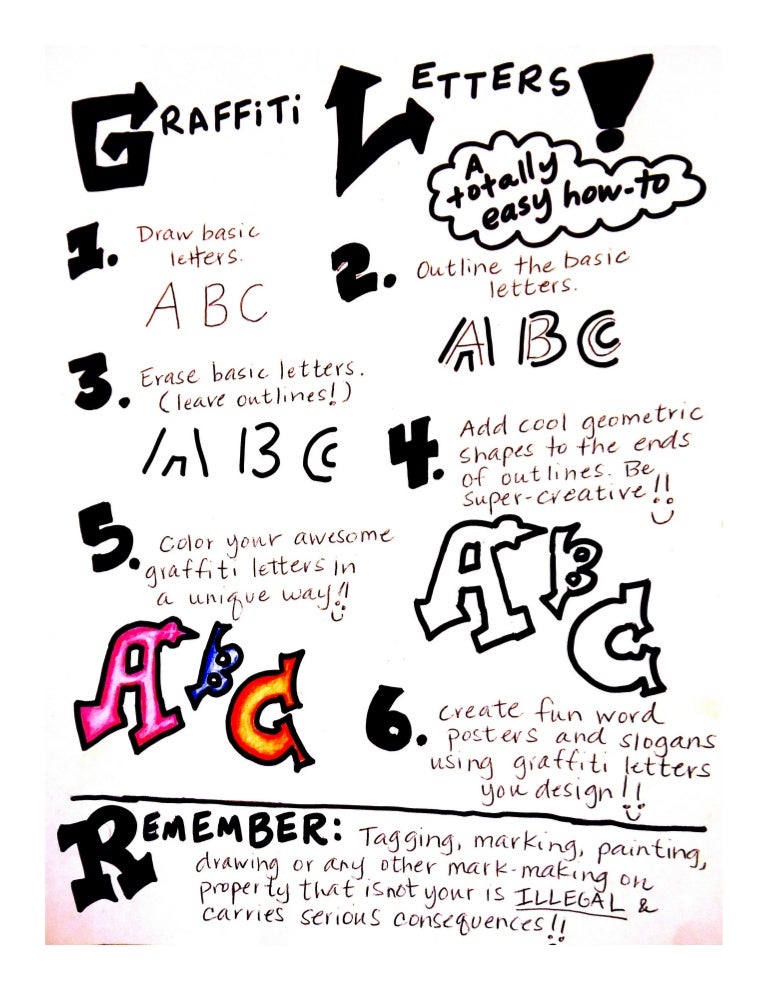 GRAFFiTi LETTERS!
A
totally
easy how-to
1. Draw basic
letters.
A B C
2. Outline the basic
letters.
A B C
3. Erase basic letters.
(leave outlines!)
A B C
4. Add cool geometric
shapes to the ends
of outlines. Be
super-creative!!
A B C
5. Color your awesome
graffiti letters in
a unique way!!
A B C
6. create fun word
posters and slogans
using graffiti letters
you design!!
REMEMBER: Tagging, marking, painting,
drawing or any other mark-making on
property that is not your is ILLEGAL &
carries serious consequences!!